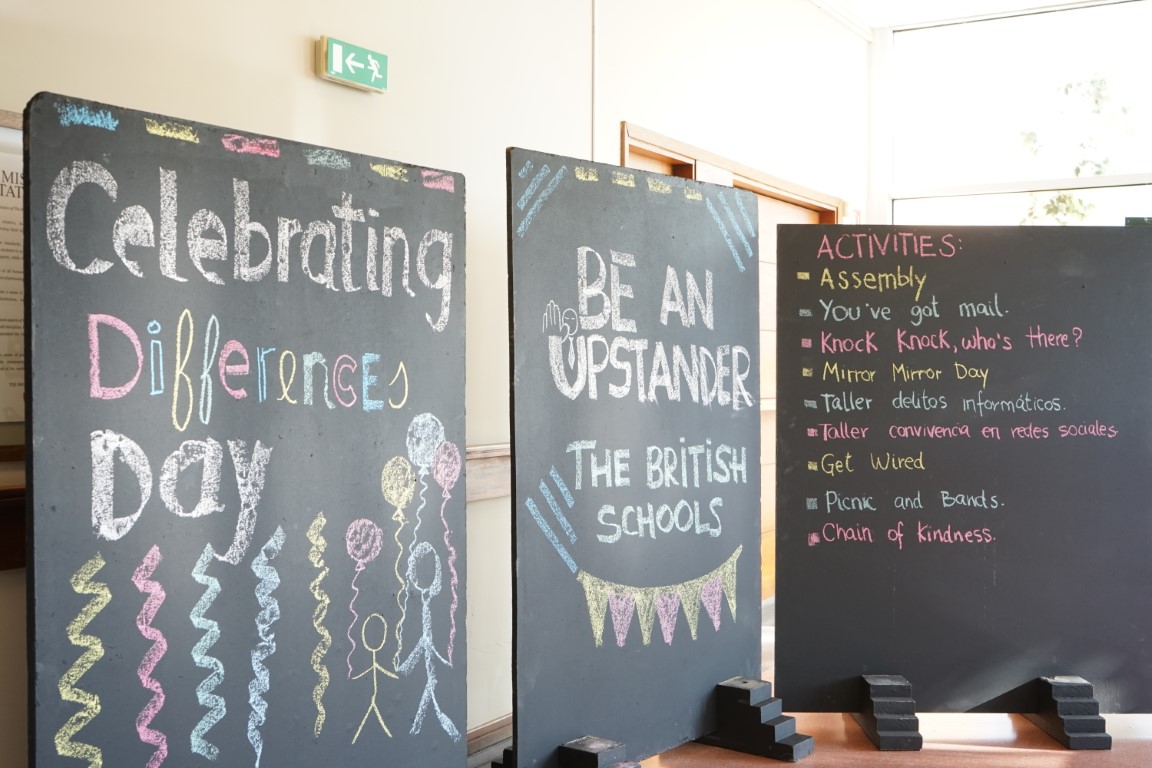 Celebrating
Differences
Day
BE AN
UPSTANDER
THE BRITISH
SCHOOLS
ACTIVITIES:
Assembly
You've got mail.
Knock Knock, who's there?
Mirror Mirror Day
Taller delitos informáticos.
Taller convivencia en redes sociales.
Get Wired
Picnic and Bands.
Chain of kindness.